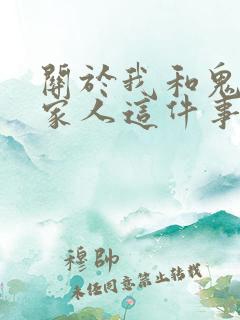 關於我和鬼
家人這件事
穆帥
未經同意禁止轉載